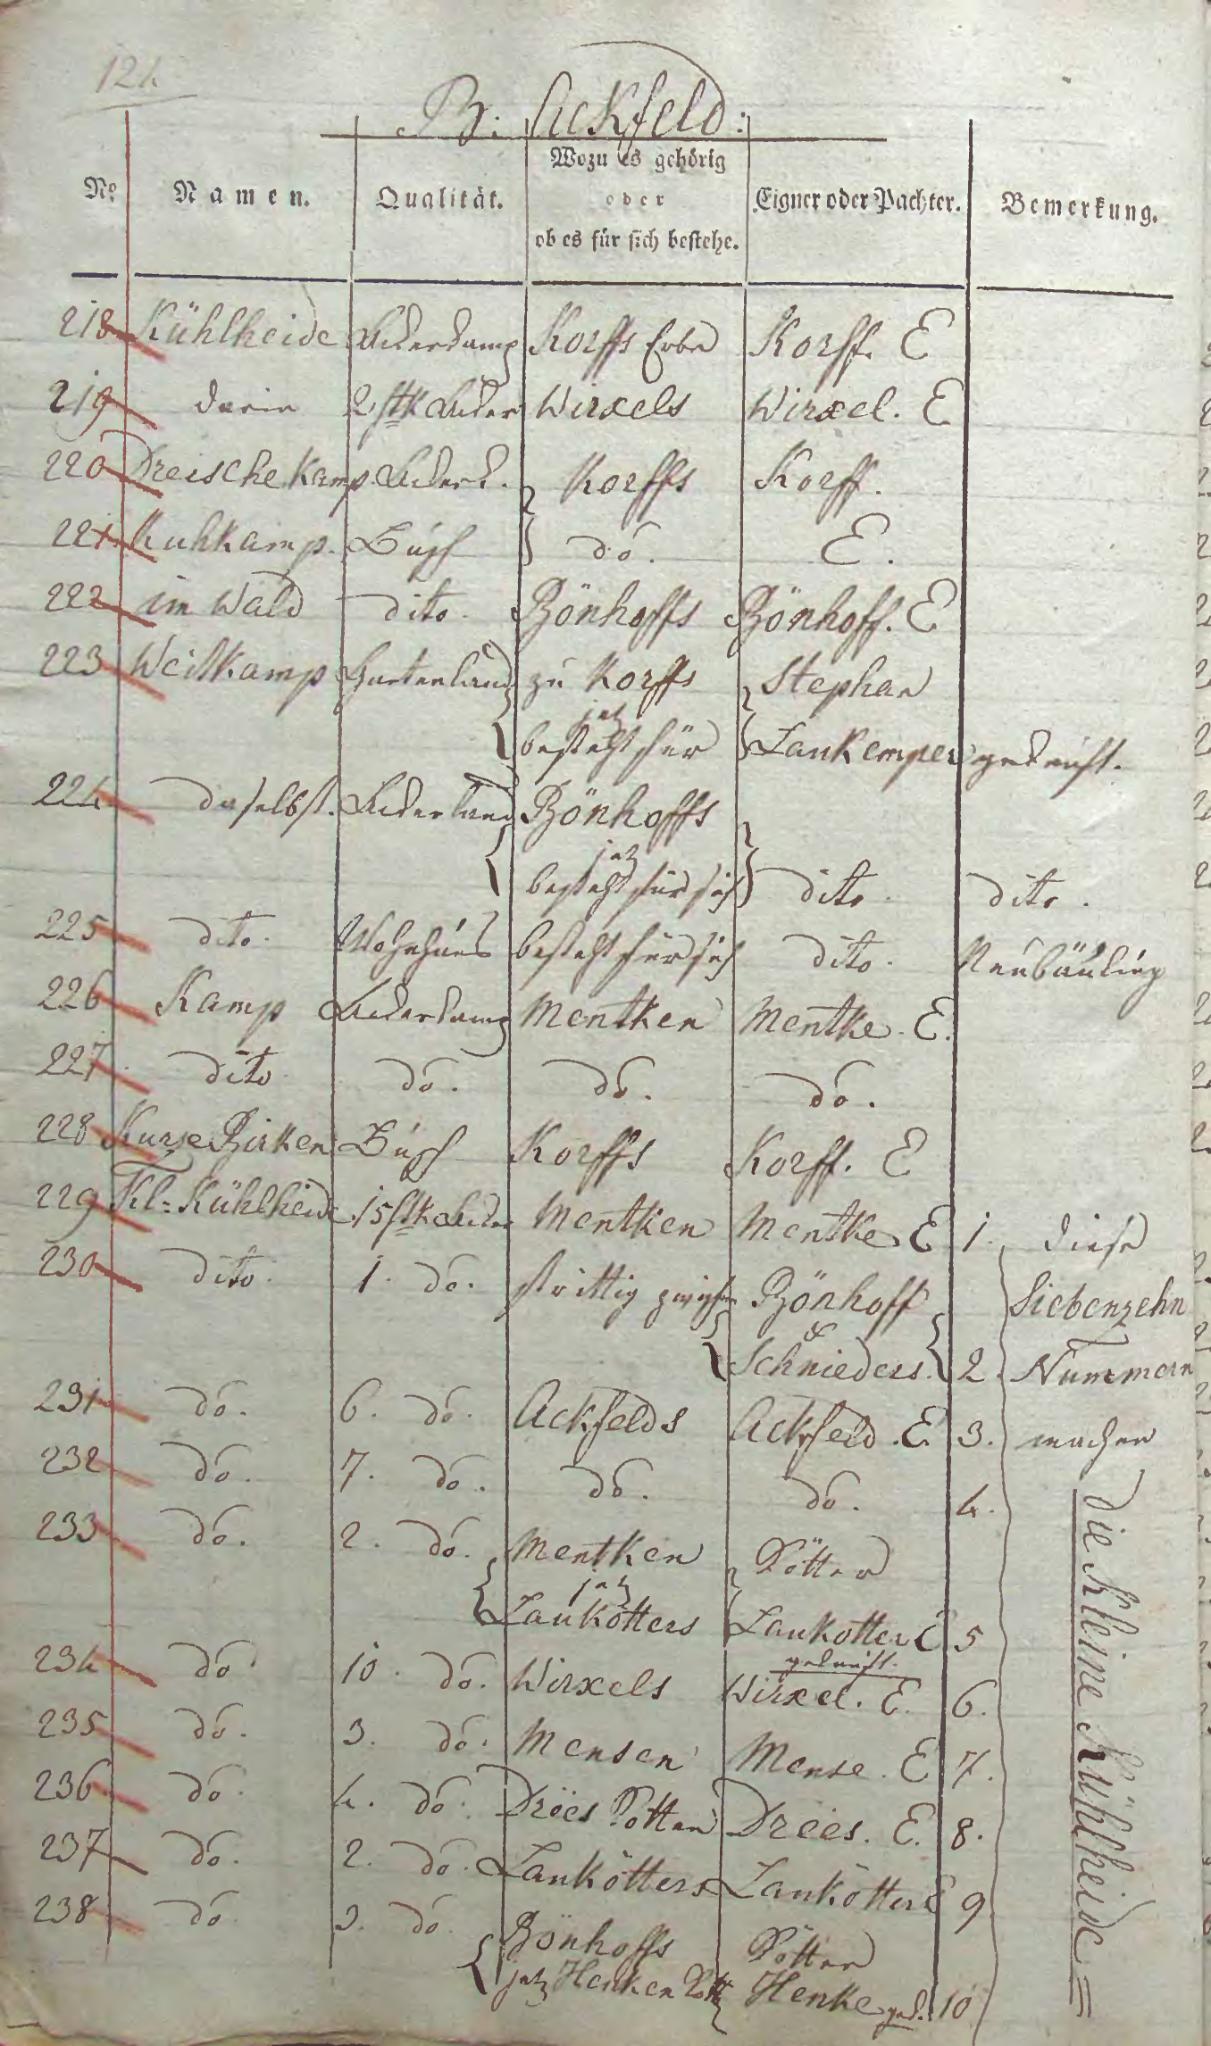 124
B: Ackfeld:
No Namen. Qualität. Wozu es gehörig oder ob es für sich bestehe. Eigner oder Pachter. Bemerkung.
218 Kühlheide Ackerkamp Korffs Erbe Korff. E
219 darin 2 stk Acker Wirxels Wirxel. E
220 Dreische Kamp Ackerk. Korffs Korff.
221 Kuhkamp. Busch do. E.
222 im Wald dito. Bönhoffs Bönhoff. E
223 Weitkamp Gartenland zu Korffs Stephan
jetz
besteht für Laukemper gekauft.
224 daselbst. Ackerland Bönhoffs
jetz
besteht für sich dito. dito.
225 dito. Wohnhaus besteht für sich dito. Neubäuling
226 Kamp Ackerkamp Mentken Mentke. E.
227 dito do. do. do.
228 Kurze Birken Busch Korffs Korff. E
229 Kl: Kühlheide 15 stk Acker Mentken Mentke E 1. diese
230 dito. 1. do. strittig zwischen Bönhoff Siebenzehn
&
Schnieders. 2. Nummern
231 do. 6. do. Ackfelds Ackfeld. E 3. machen
232 do. 7. do. do. do. 4.
die Kleine Kühlheide =
233 do. 2. do. Mentken Kötter
jetz
Laukötters Laukotter E 5
gekauft.
234 do. 10. do. Wirxels Wirxel. E. 6.
235 do. 3. do. Mensen Mense. E 7.
236 do. 4. do. Drees Kotten Drees. E. 8.
237 do. 2. do. Laukötters Laukötter E 9
238 do. 3. do. Bönhoffs Kötter
jetz Henken Kott Henke gek. 10